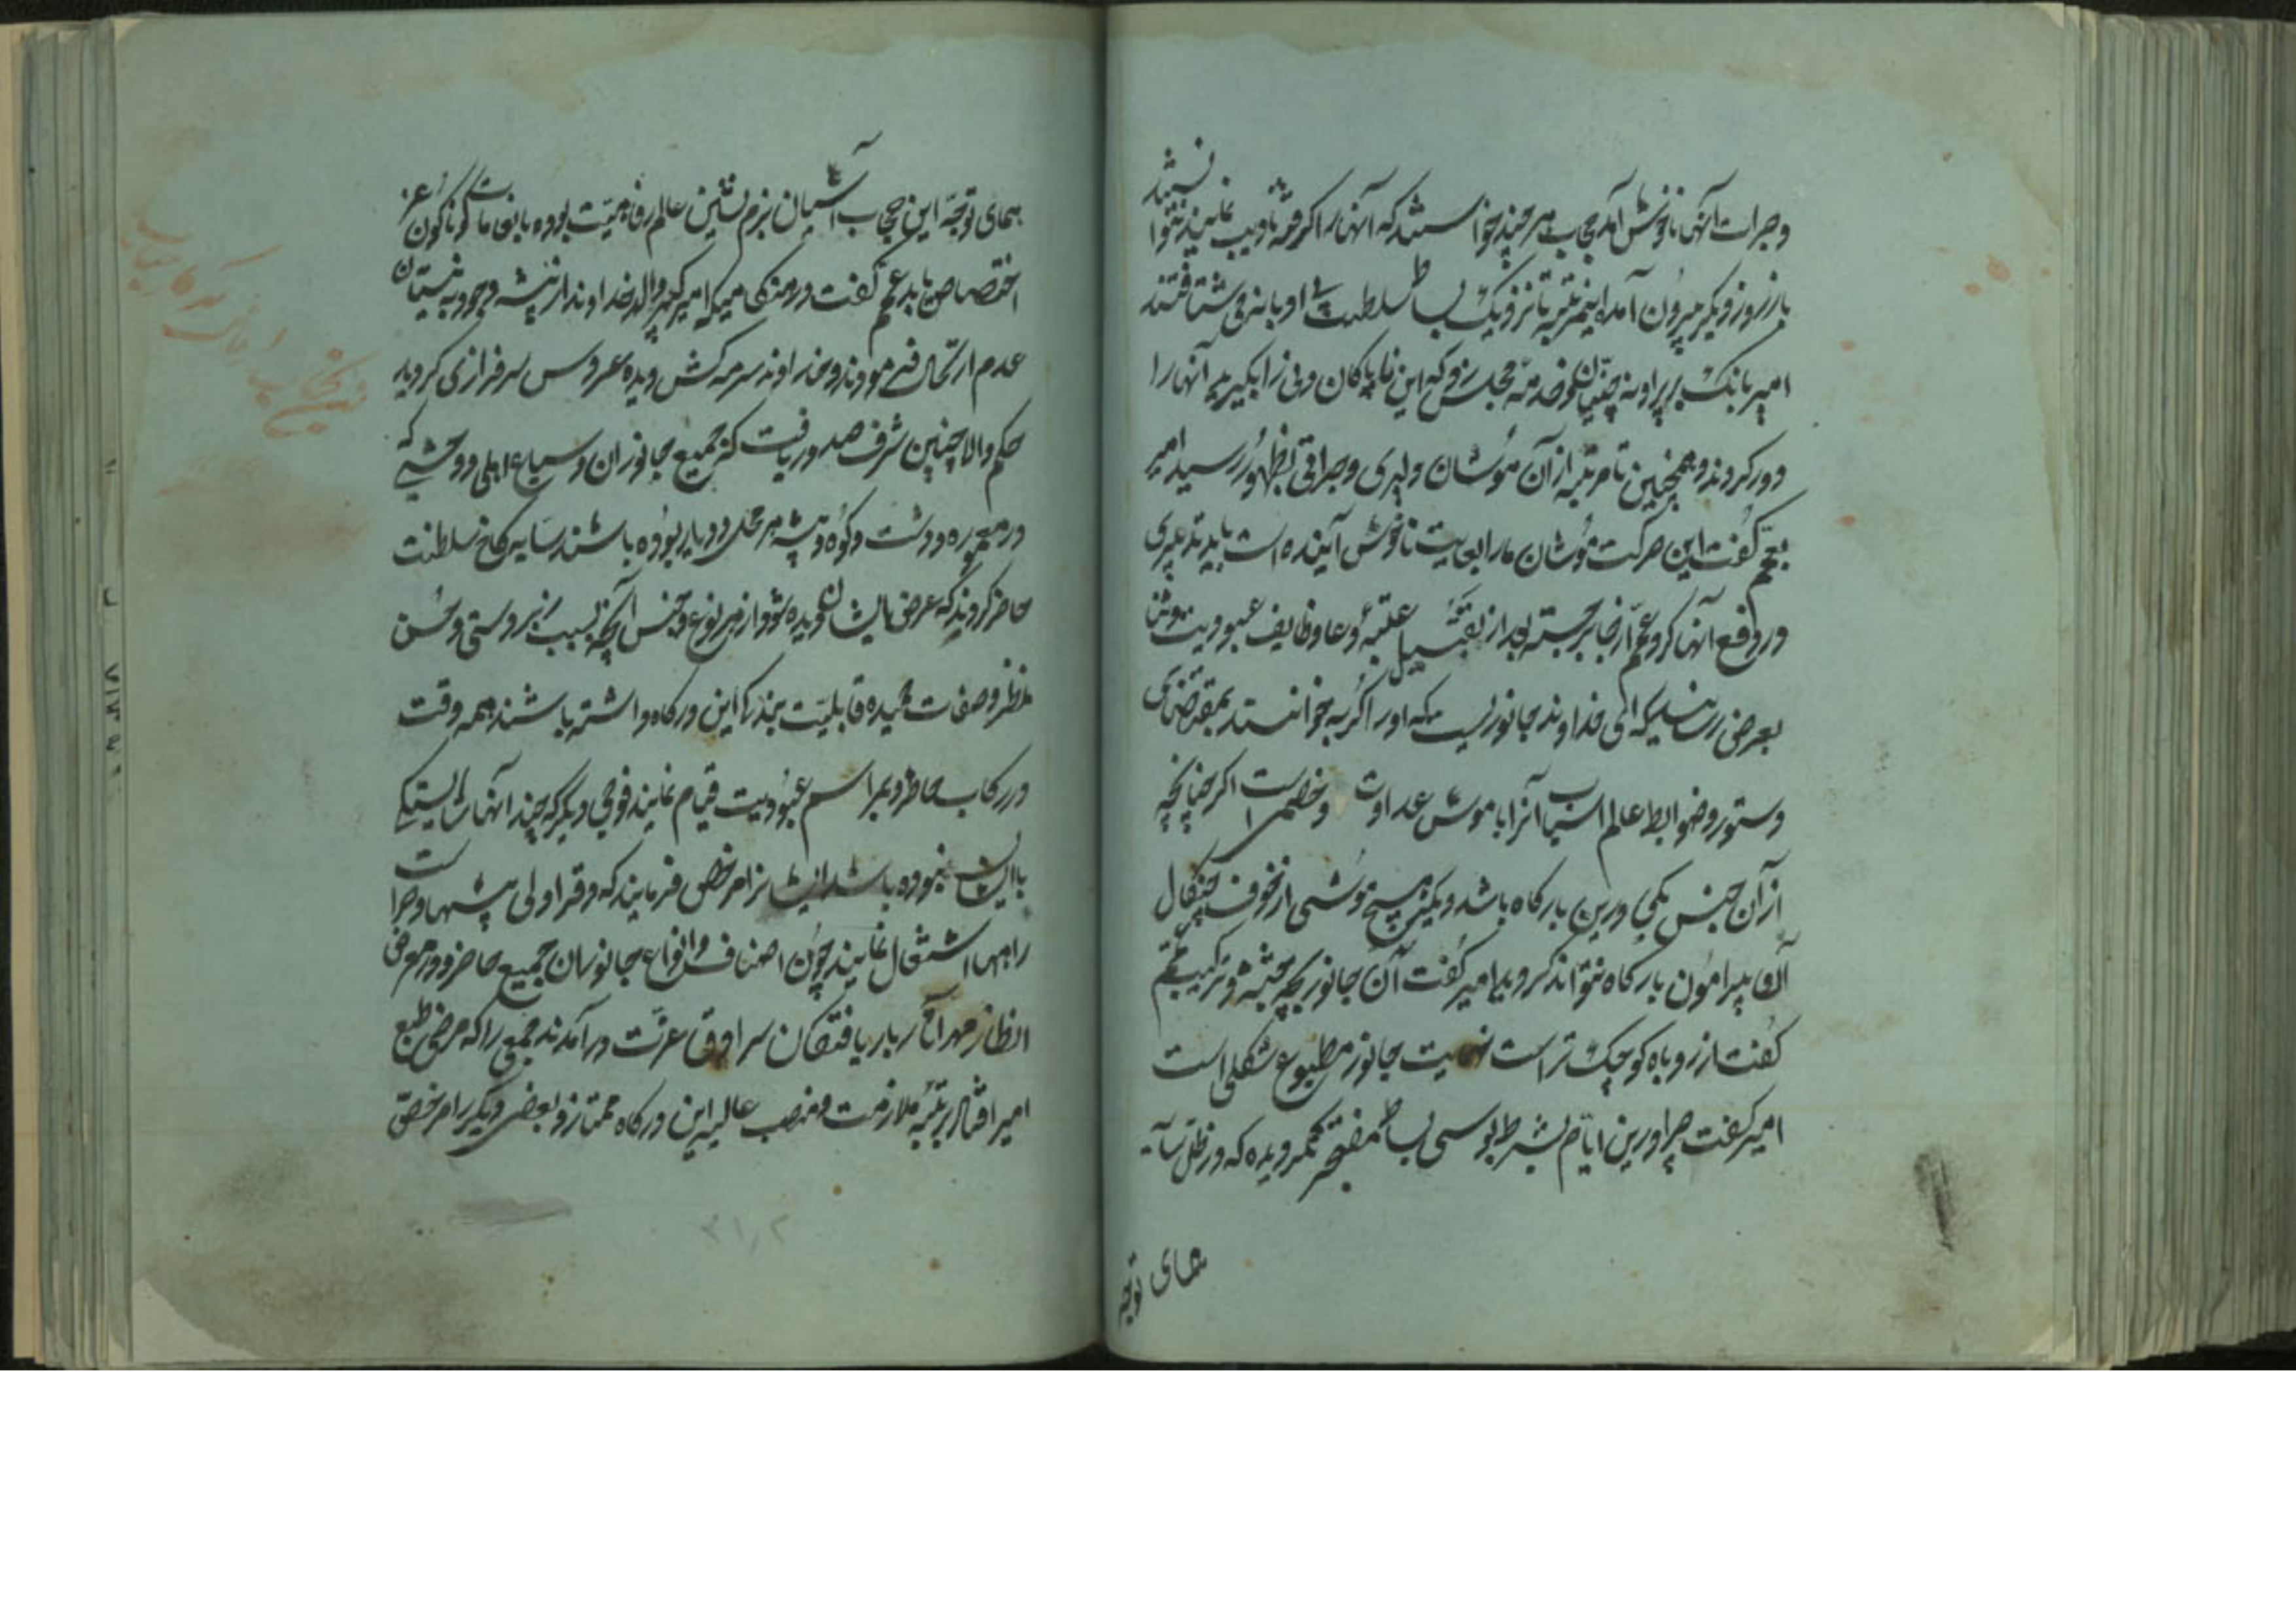 و جرات آنها ناخوش آمد حجاب هر چند خواستند که آنها را گرفته تادیب نمایند نتوانستند
باز روز دیگر بیرون آمده اینمرتبه تا نزدیک بساط سلطنت او بازی شتافتند
امیر بانک بر پرا و نه چینان و خدمه مجلس زد که این نابکان دنی را بگیرید آنها را
دور کردند و همچنین تا مرتبه از آن موشان دلیری و جراتی بظهور رسید امیر
بعجم گفت این حرکت موشان ما را بغایت ناخوش آینده است باید تدبیری
در دفع آنها کرد عجم از جا برجسته بعد از تقبیل عتبه و دعا وظایف عبودیت
بعرض رسانید که ای خداوند جانوریست که او را گربه خوانند بمقتضای
دستور و ضوابط عالم اسباب آنرا با موش عداوت و خصمی است اگر چنانچه
از آن جنس یکی درین بارگاه باشد دیگر هیچ موشی از خوف چنگال
آن پیرامون بارگاه نتواند گردید امیر گفت آن جانور بچه جثه و ترکیب عجم
گفت از روباه کوچک تر است نهایت جانور مطبوع شکلی است
امیر گفت چرا درین ایام بشرط بوسی بساط مفتخر نگردیده که در ظل سایه
همای توجه
همای توجه این حجاب آشیان بزم نشین عالم رفاهیت بوده بانعامات گوناگون عز
اختصاص یابد عجم گفت در هنگامیکه امیر کبیر والد خداوند از بیشه وجود به نیستان
عدم ارتحال فرمودند و خداوند سرمه کش دیده عروس سرفرازی گردید
حکم والا چنین شرف صدور یافت که جمیع جانوران و سباع اهلی و وحشی که
در معموره و دشت و کوه و بیشه هر محل و دیار بوده باشند سایه کاخ سلطنت
حاضر گردند که عرض ایشان دیده شود از هر نوع و جنس آنچه بسبب زبردستی و حسن
منظر و صفات حمیده قابلیت بندگی این درگاه داشته باشند همه وقت
در رکاب حاضر و بمراسم عبودیت قیام نمایند فوجی دیگر که چند آنها شایستگی
با ایشان نبوده باشد ایشانرا مرخص فرمایند که دفتر اولی پیشها و حراست
را بهما اشتغال نمایند چون اصناف و انواع جانوران جمیع حاضر و در معرض
انظار مهر آثار بار یافتگان سرادق عزت در آمدند جمعی را که مرضی طبع
امیر افتاد برتبه ملازمت و منصب عالیه این درگاه ممتاز و بعضی دیگر را مرخص